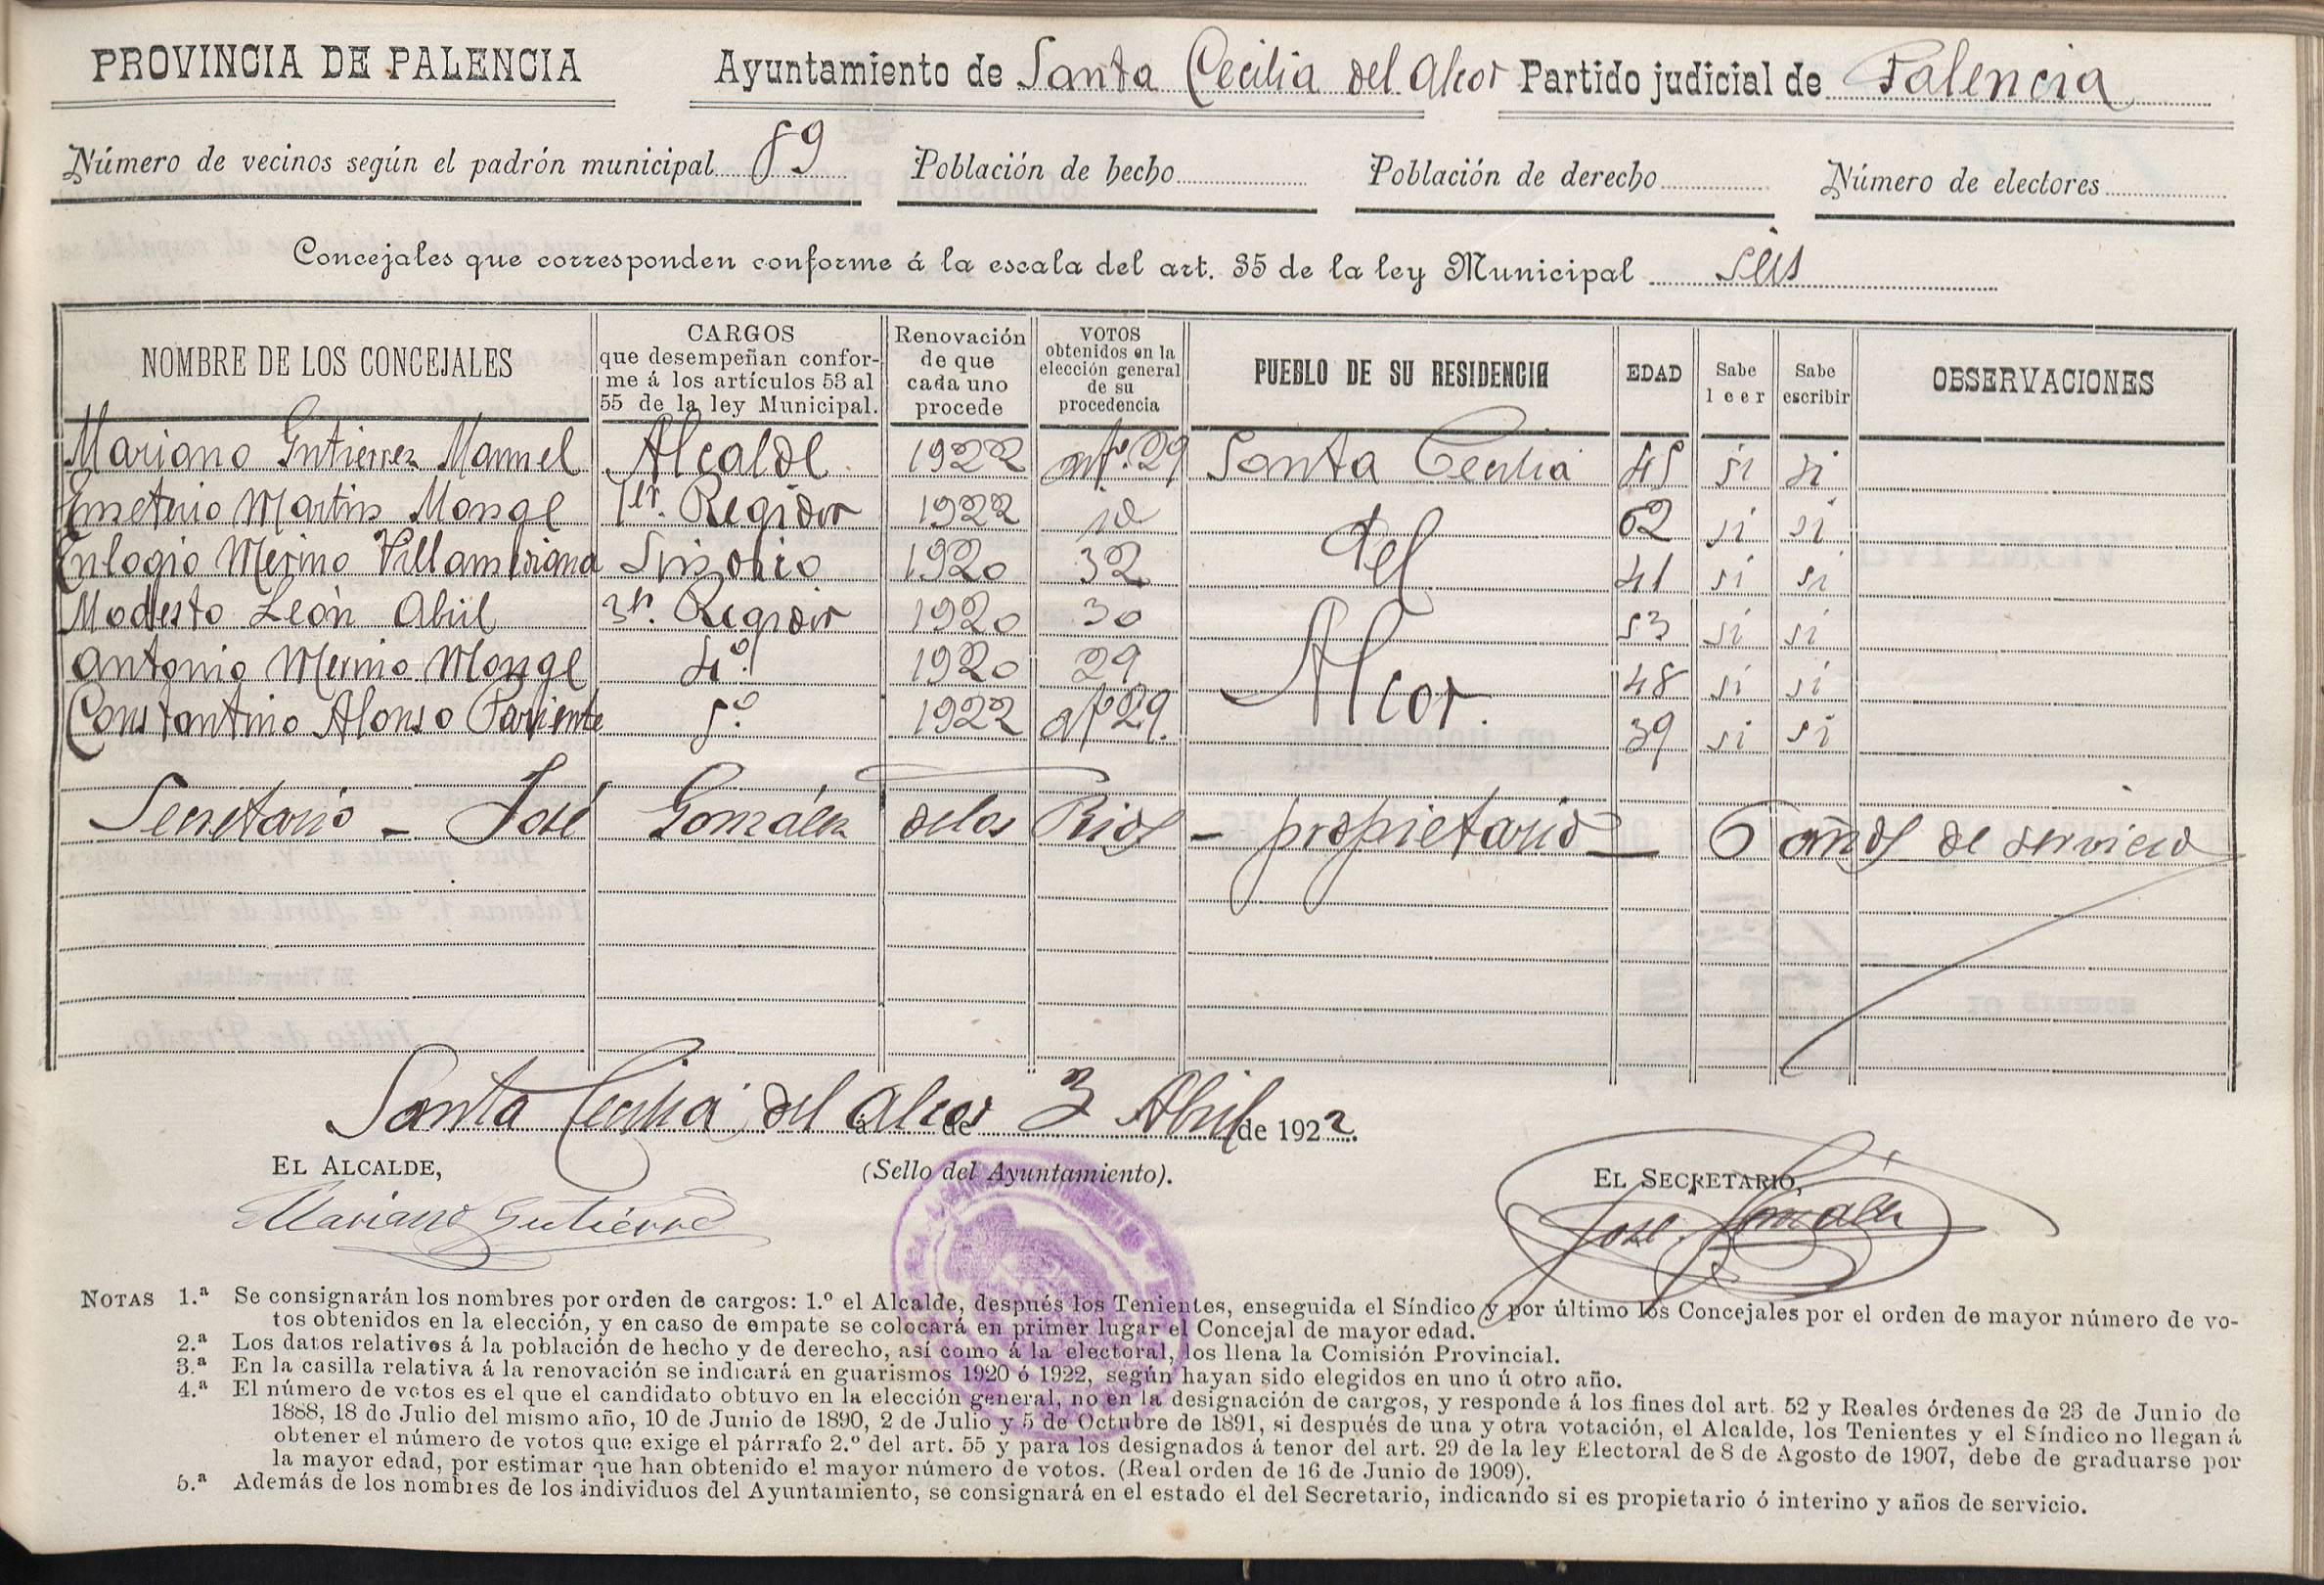 PROVINCIA DE PALENCIA Ayuntamiento de Santa Cecilia del Alcor Partido judicial de Palencia
Número de vecinos según el padrón municipal 89 Población de hecho Población de derecho Número de electores
Concejales que corresponden conforme á la escala del art. 35 de la ley Municipal seis
NOMBRE DE LOS CONCEJALES
CARGOS
que desempeñan confor-
me á los artículos 53 al
55 de la ley Municipal.
Renovación
de que
cada uno
procede
VOTOS
obtenidos en la
elección general
de su
procedencia
PUEBLO DE SU RESIDENCIA
EDAD
Sabe
leer
Sabe
escribir
OBSERVACIONES
Mariano Gutierrez Manuel Alcalde 1922 artº. 29 Santa Cecilia 45 si si
Emeterio Martin Monge 1er. Regidor 1922 id 62 si si
Eulogio Merino Villamediana Sindico 1920 32 del 41 si si
Modesto León Abril 3er. Regidor 1920 30 53 si si
Antonio Merino Monge 4º. 1920 29 Alcor. 48 si si
Constantino Alonso Pariente 5º. 1922 artº 29. 39 si si
Secretario - José González de los Rios - propietario - 6 años de servicio
Santa Cecilia del Alcor á de 3 Abril de 1922.
EL ALCALDE, (Sello del Ayuntamiento). EL SECRETARIO,
Mariano Gutiérrez José González
NOTAS 1.ª Se consignarán los nombres por orden de cargos: 1.º el Alcalde, después los Tenientes, enseguida el Síndico y por último los Concejales por el orden de mayor número de vo-
tos obtenidos en la elección, y en caso de empate se colocará en primer lugar el Concejal de mayor edad.
2.ª Los datos relativos á la población de hecho y de derecho, así como á la electoral, los llena la Comisión Provincial.
3.ª En la casilla relativa á la renovación se indicará en guarismos 1920 ó 1922, según hayan sido elegidos en uno ú otro año.
4.ª El número de votos es el que el candidato obtuvo en la elección general, no en la designación de cargos, y responde á los fines del art. 52 y Reales órdenes de 23 de Junio de
1888, 18 de Julio del mismo año, 10 de Junio de 1890, 2 de Julio y 5 de Octubre de 1891, si después de una y otra votación, el Alcalde, los Tenientes y el Síndico no llegan á
obtener el número de votos que exige el párrafo 2.º del art. 55 y para los designados á tenor del art. 29 de la ley Electoral de 8 de Agosto de 1907, debe de graduarse por
la mayor edad, por estimar que han obtenido el mayor número de votos. (Real orden de 16 de Junio de 1909).
5.ª Además de los nombres de los individuos del Ayuntamiento, se consignará en el estado el del Secretario, indicando si es propietario ó interino y años de servicio.